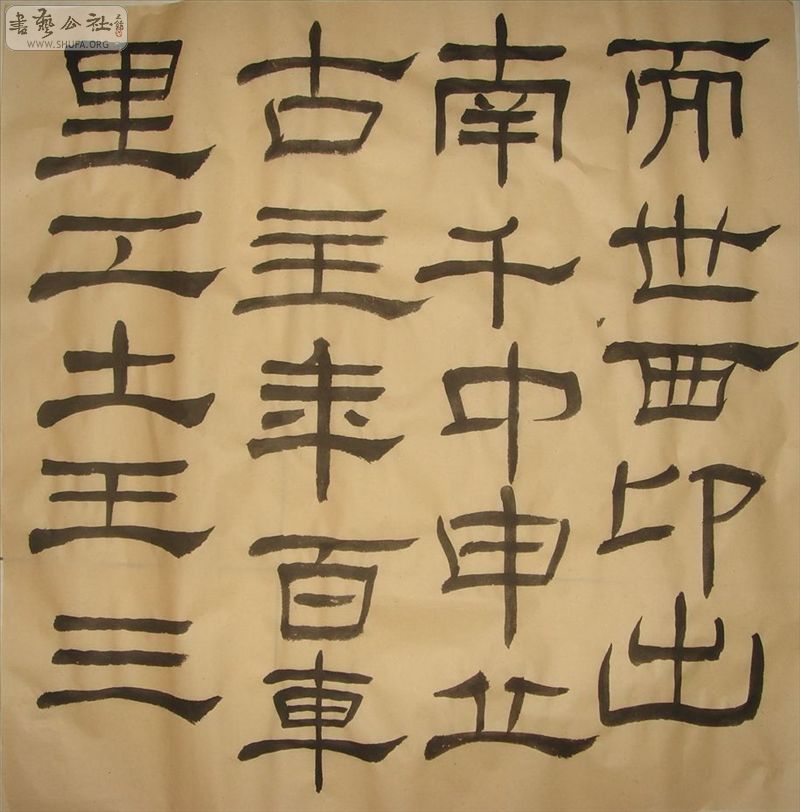 書藝公社
WWW.SHUFA.ORG
而世西印出
南千中申丘
古主年百車
里工土王三